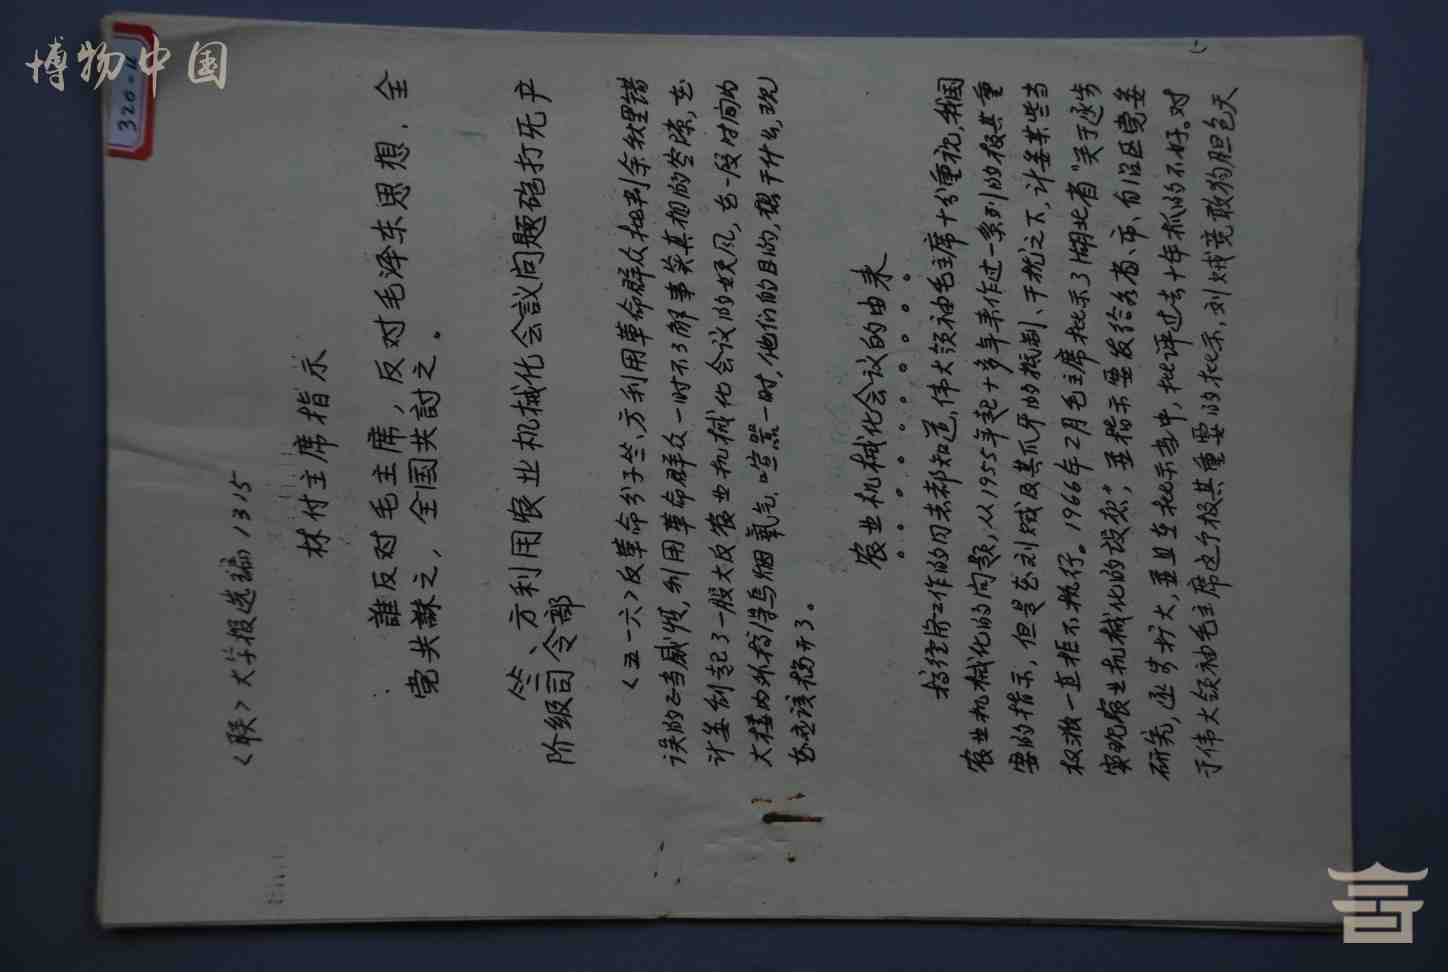 博物中国
320-11
〈联〉大字报选编 1315
林付主席指示
誰反对毛主席，反对毛泽东思想，全
党共誅之，全国共討之。
竺、方利用农业机械化会議问题砲打无产
阶级司令部
〈五一六〉反革命分子竺、方利用革命群众批判余秋里错
误的正当威慨，利用革命群众一时不了解事实真相的空隙，在
计委刮起了一股大反农业机械化会议的妖风，在一段时间内
大楼内外搞得乌烟瘴气，喧嚣一时，他们的目的，想干什么，现
在应该揭开了。
农业机械化会议的由来
搞经济工作的同志都知道，伟大领袖毛主席十分重视，我国
农业机械化的问题，从1955年起十多年来作过一系列的极其重
要的指示，但是在刘贼及其爪牙的抵制、干扰之下，计委某些当
权派一直拒不执行。1966年2月毛主席批示了湖北省“关于逐步
实现农业机械化的设想”，並指示要发给各省、市、自治区党委
研究，逐步扩大，並且在批示当中，批评过去十年抓的不好。对
于伟大领袖毛主席这个极其重要的批示，刘贼竟敢狗胆包天